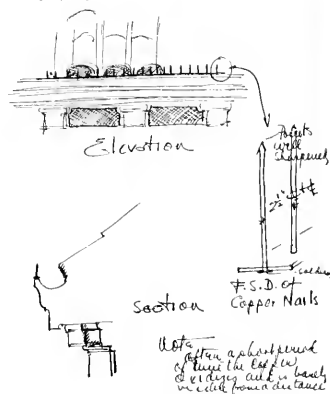 Elevation
Points
well
sharpened
2½"
Section
F.S.D. of
Copper Nails
Note
after a short period
of time the Copper
oxidizes and is barely
visible from a distance